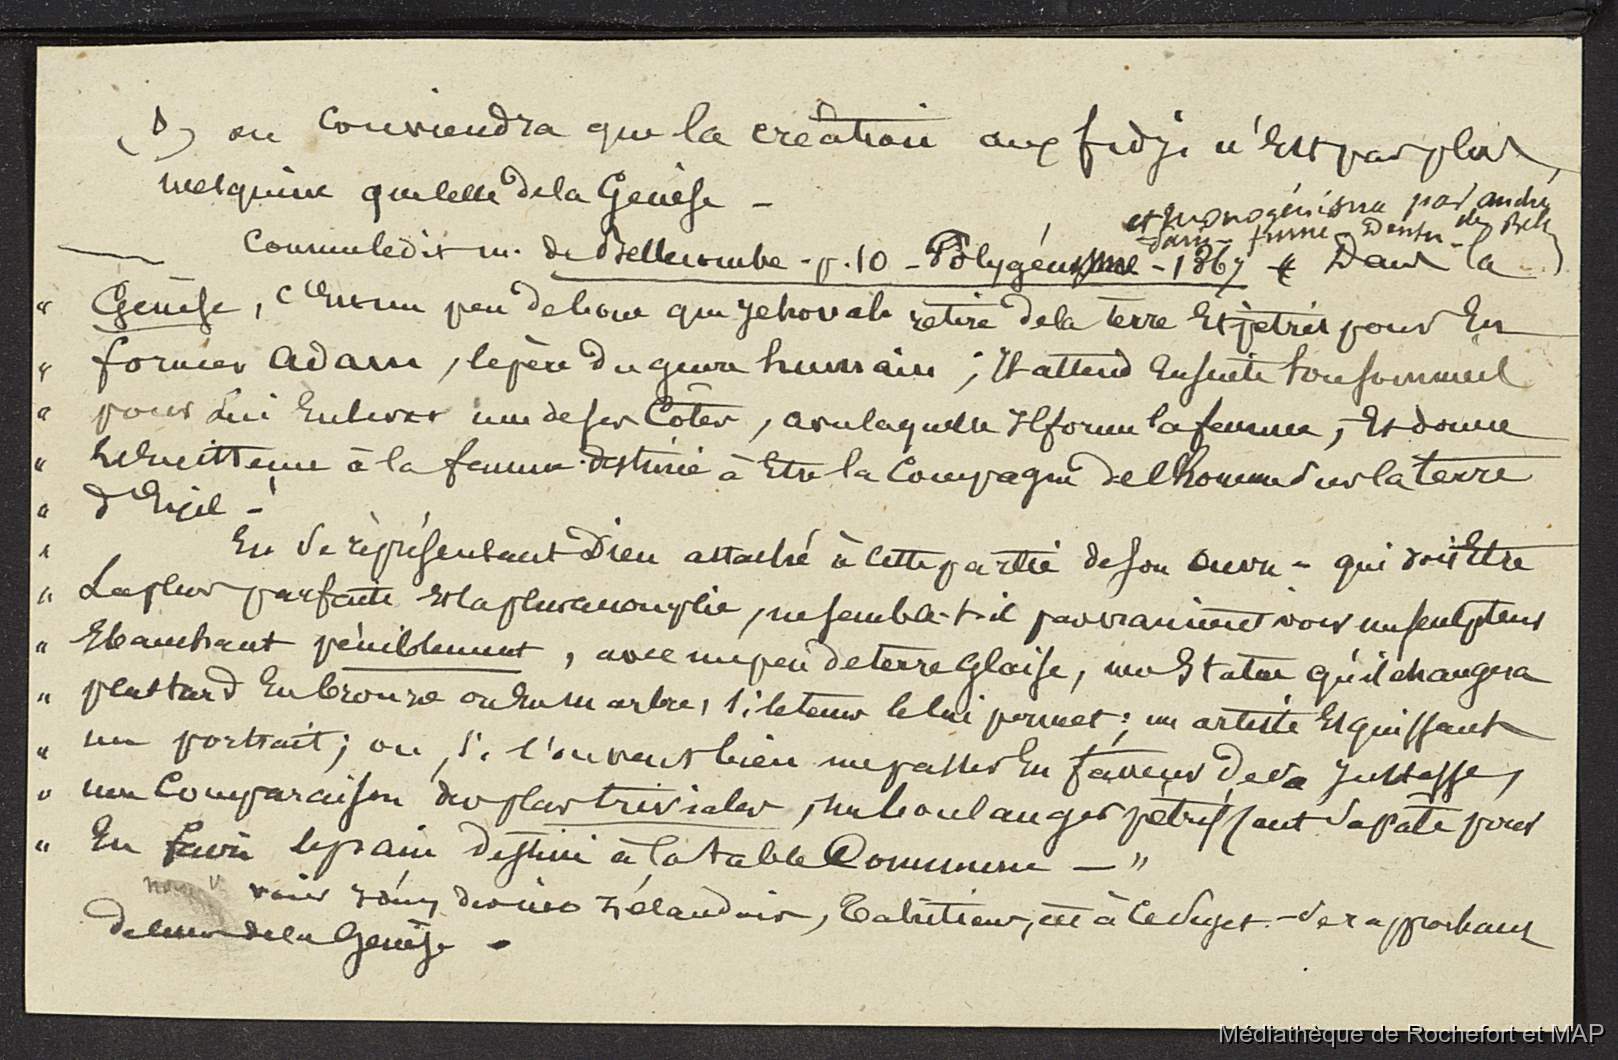 (1) on conviendra que la création aux fidji n'est pas plus
mesquine que celle de la Genèse –
et monogénisme par andré de Bell
dans
Comme le dit m. de Bellecombe – p. 10 – Polygénisme – 1867 « Dans la
" Genèse, c'est un peu de boue que Jehovah retire de la terre et pétrit pour en
" former adam, le père du genre humain ; il attend ensuite son sommeil
" pour lui enlever une de ses côtes, avec laquelle il forme la femme, et donne
" à la femme destinée à être la compagne de l'homme sur la terre
" d'exil –
" En se représentant Dieu attaché à cette partie de son œuvre – qui doit être
" La plus parfaite et la plus accomplie, ne semble-t-il pas vraiment voir un sculpteur
" Ebauchant péniblement, avec un peu de terre glaise, une statue qu'il changera
" plus tard en bronze ou en marbre, si le temps le lui permet ; un artiste esquissant
" un portrait ; ou, si l'on veut bien me passer en faveur de sa justesse,
" une comparaison des plus triviales, un boulanger pétrissant sa pâte pour
" en faire le pain destiné à la table commune – "
zélandais, Tahitiens, à ce sujet – se rapprochant
de la Genèse –
Médiathèque de Rochefort et MAP